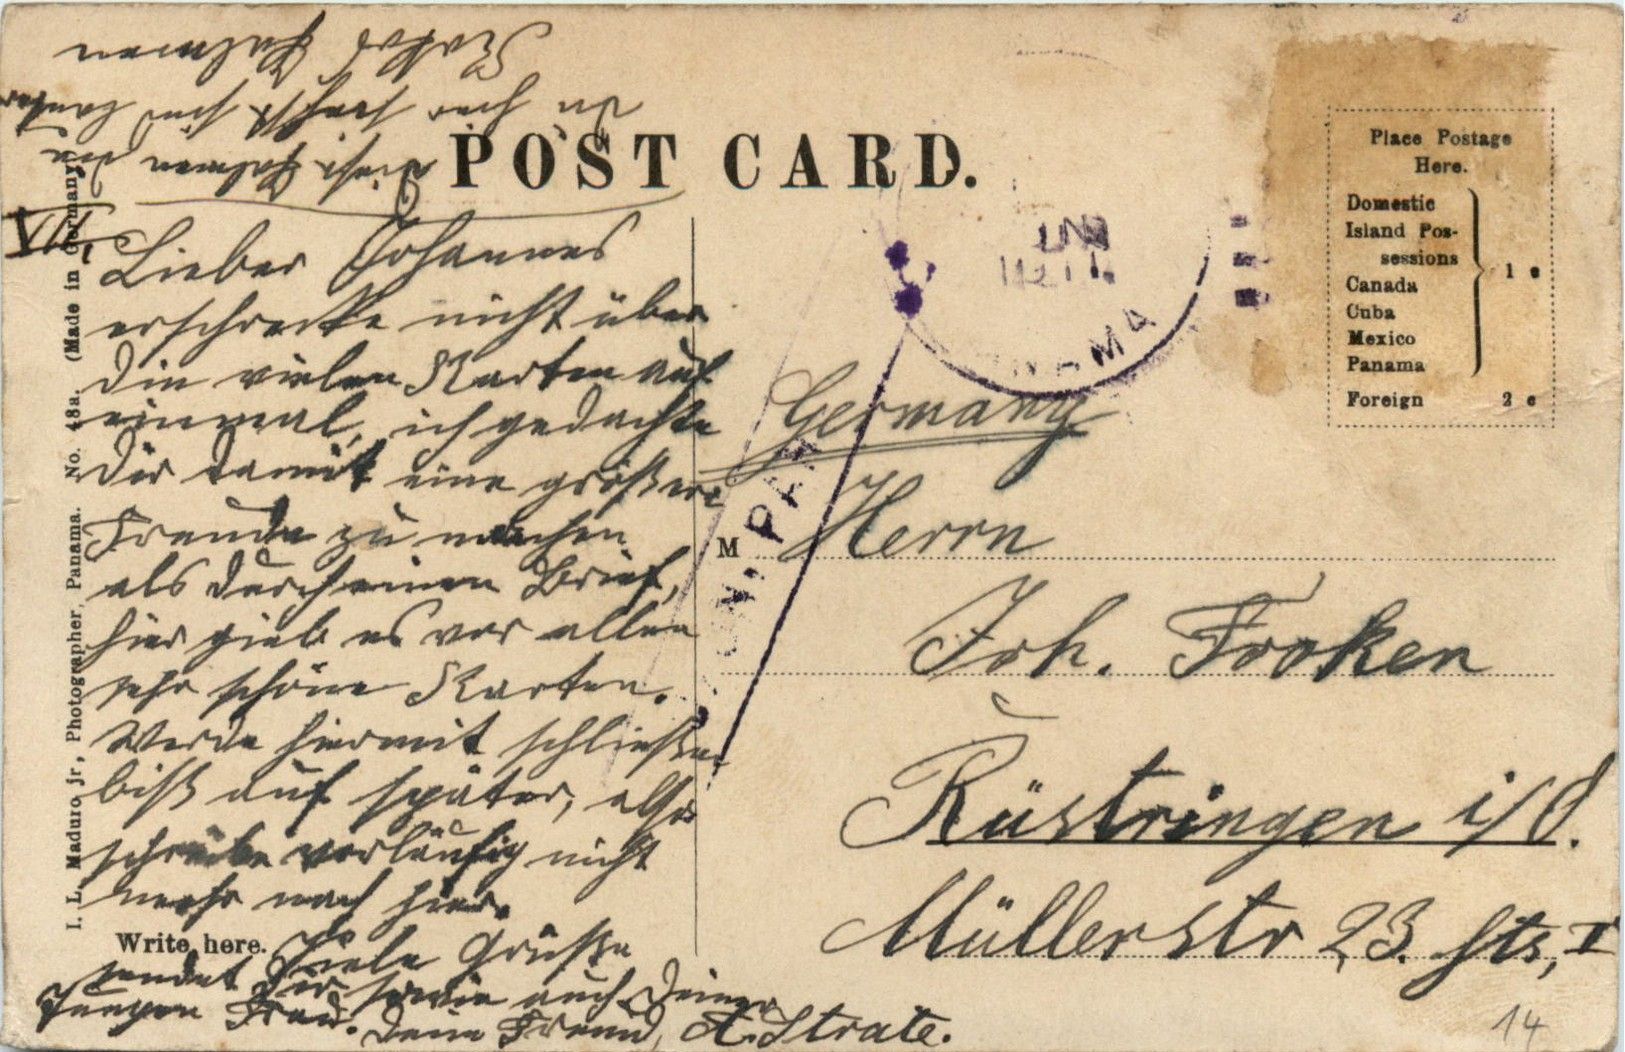 POST CARD.
Place Postage
Here.
Domestic
Island Pos-
sessions
Canada
Cuba
Mexico
Panama
1 c
Foreign 2 c
I. L. Maduro jr, Photographer, Panama. No. 48a. (Made in Germany)
Diese Palmen die
du hier siehst sind
Palmen
VII.
Lieber Johannes
erschrecke nicht über
die vielen Karten auf
einmal, ich gedachte
Dir damit eine größere
Freude zu machen
als durch einen Brief,
hier giebt es vor allen
sehr schöne Karten.
Werde hiermit schließen
biß auf später, also
schreibe vorläufig nicht
mehr nach hier.
Write here.
Viele Grüße
sendet Dir sowie auch Deiner
jungen Frau. Dein Freund, A. Strate.
PANAMA
Germany
M Herrn
Joh. Frerken
Rüstringen i/O.
Müllerstr 23. Hts, I
14